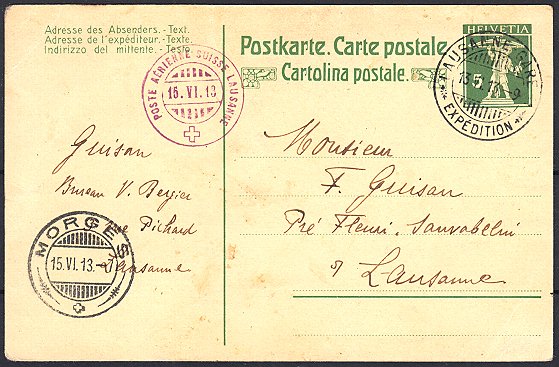 Adresse des Absenders. - Text.
Adresse de l'expéditeur. - Texte.
Indirizzo del mittente. - Testo.
Postkarte. Carte postale.
Cartolina postale.
HELVETIA
5
LAUSANNE
EXPÉDITION
POSTE AÉRIENNE SUISSE LAUSANNE
15.VI.13
Guisan
Bureau V. Bergier
Pichard
Lausanne
MORGES
15.VI.13.-7
Monsieur
F. Guisan
Pré Fleuri. Sauvabelin
s/ Lausanne